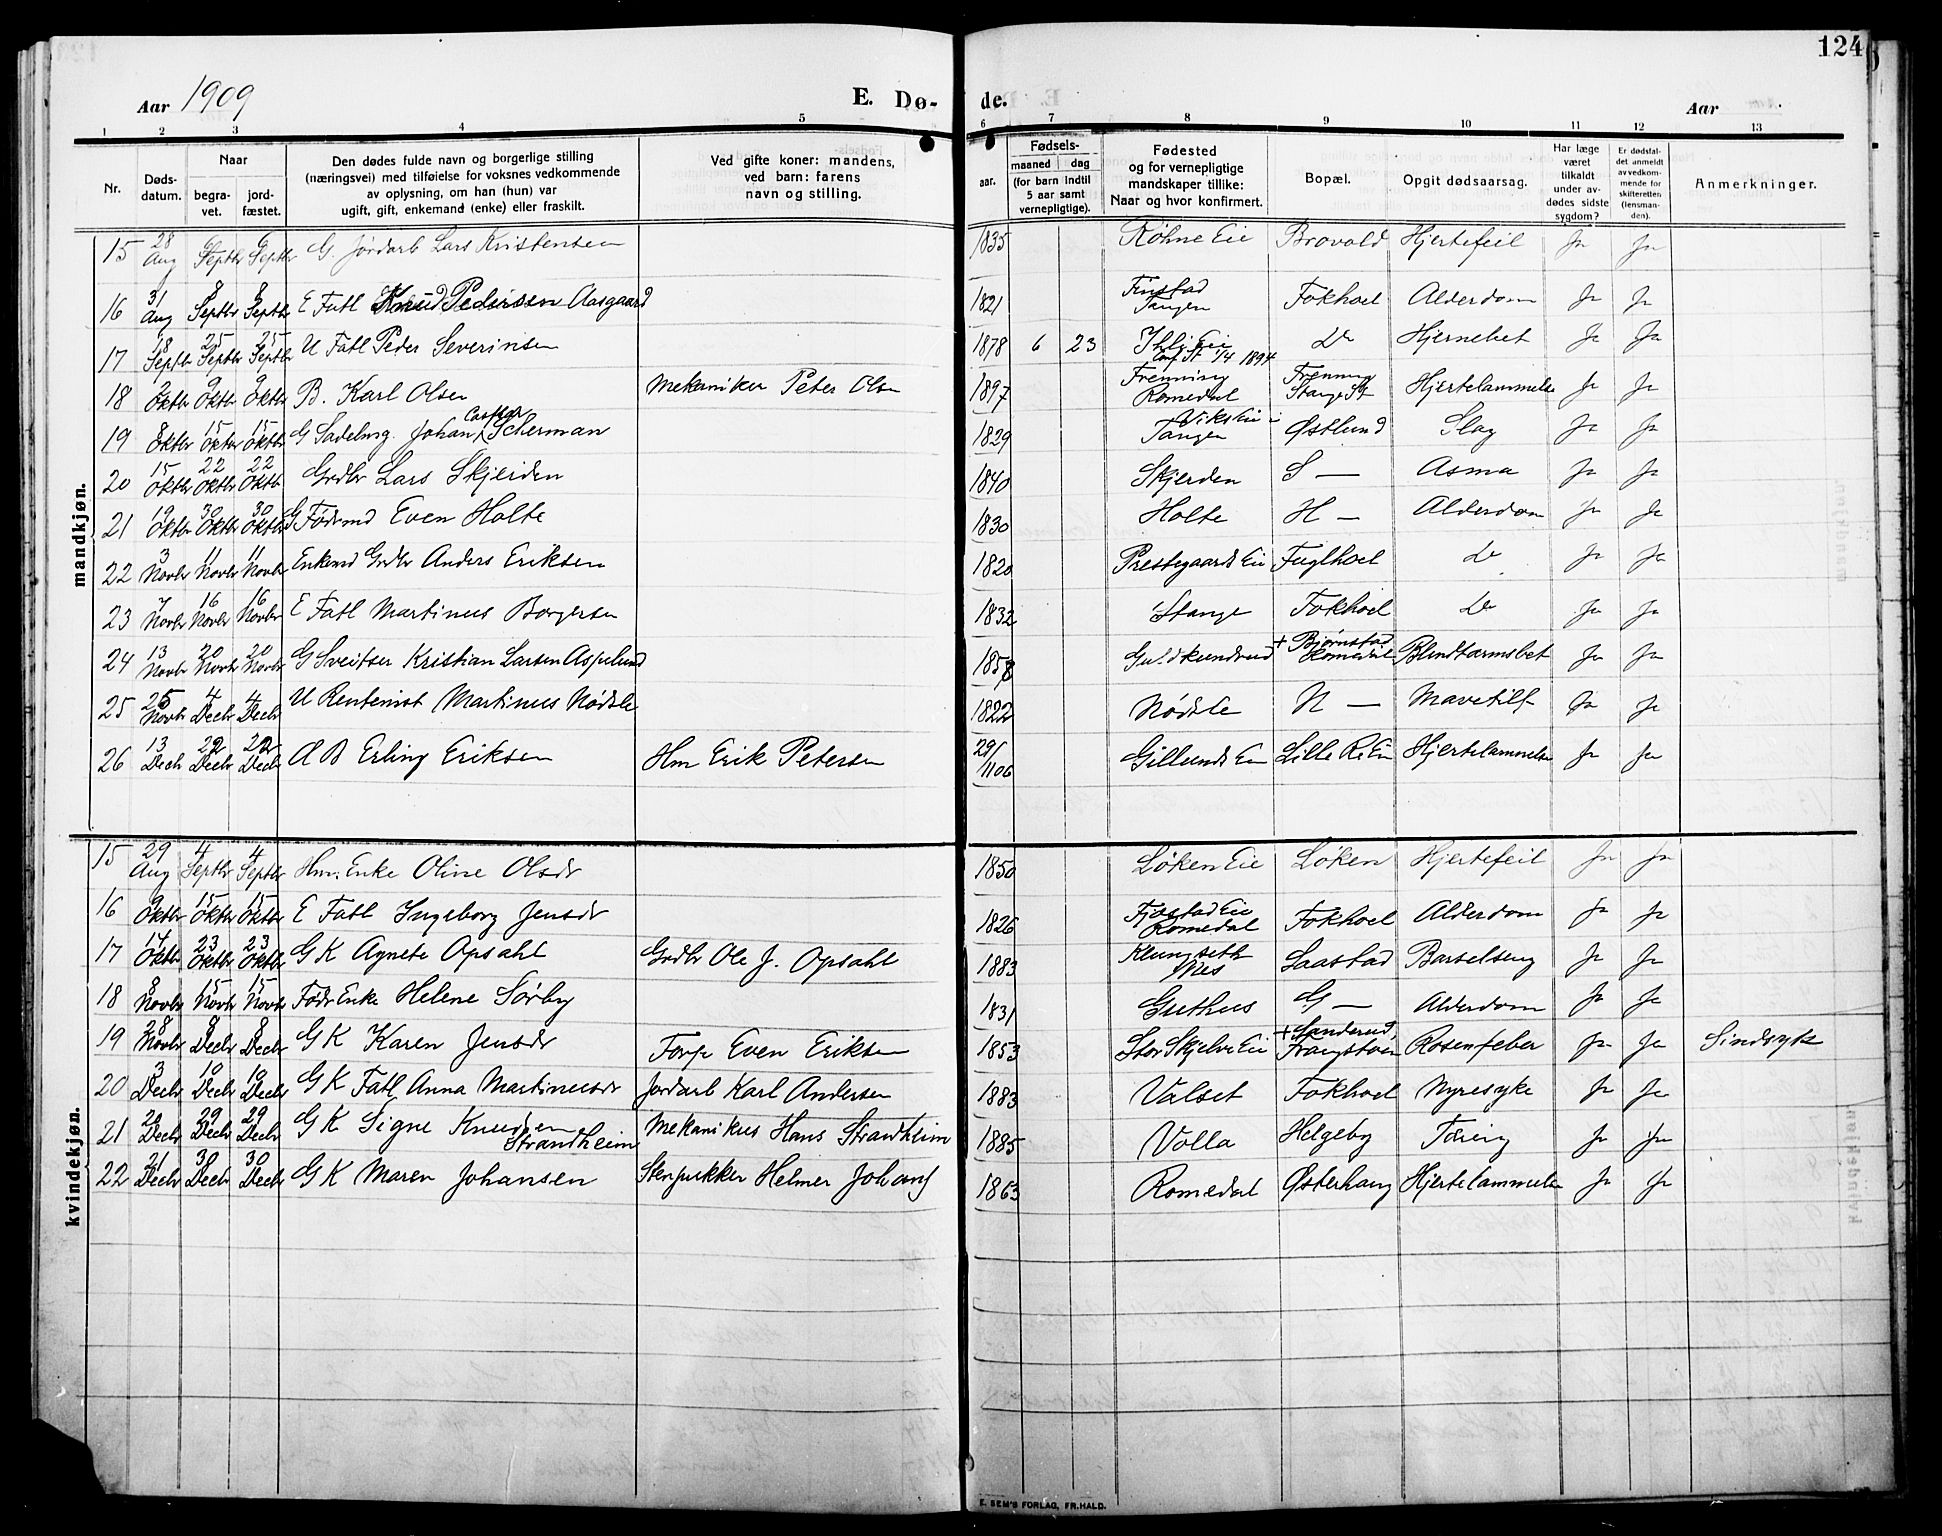 124
Aar 1909 E. Dø- de. Aar
1 2 3 4 5 6 7 8 9 10 11 12 13
Nr. Døds-datum. Naar begra-vet. jord-fæstet. Den dødes fulde navn og borgerlige stilling (næringsvei) med tilføielse for voksnes vedkommende av oplysning, om han (hun) var ugift, gift, enkemand (enke) eller fraskilt. Ved gifte koner: mandens, ved barn: farens navn og stilling. Fødsels- aar. maaned dag (for barn indtil 5 aar samt vernepligtige). Fødested og for vernepligtige mandskaper tillike: Naar og hvor konfirmert. Bopæl. Opgit dødsaarsag. Har læge været tilkaldt under av-dødes sidste sygdom? Er dødsfal-det anmeldt av vedkom-mende for skifteretten (lensman-den). Anmerkninger.
mandkjøn.
15 28 Aug 6 Septbr 6 Septbr G. Jordarb Lars Kristensen 1835 Røhne Eie Brovold Hjertefeil Ja Ja
16 31 Aug 8 Septbr 8 Septbr E Fatl Knud Pederssen Aasgaard 1821 Finstad Tangen Fokhoel Alderdom Ja Ja
17 18 Septbr 25 Septbr 25 Septbr U Fatl Peder Severinsen 1878 6 23 Eie Conf St 1/4 1894 Do Hjernebet Ja Ja
18 2 Oktbr 9 Oktbr 9 Oktbr B. Karl Olsen Mekaniker Peter Olsen 1897 Frenning Romedal Frenning Stange St Hjertelammelse Ja Ja
19 8 Oktbr 15 Oktbr 15 Oktbr G Sadelmg. Johan Casper Scherman 1829 Viks Eie i Tangen Østlund Slag Ja Ja
20 15 Oktbr 22 Oktbr 22 Oktbr Grdbr Lars Skjerden 1840 Skjerden S — Asma Ja Ja
21 19 Oktbr 30 Oktbr 30 Oktbr G Fødrmd Even Holte 1830 Holte H — Alderdom Ja Ja
22 3 Novbr 11 Novbr 11 Novbr Enkemd Grdbr Anders Eriksen 1820 Prestegaards Eie Fuglhoel do Ja Ja
23 7 Novbr 16 Novbr 16 Novbr E Fatl Martinus Borgersen 1832 Stange Fokhoel do Ja Ja
24 13 Novbr 20 Novbr 20 Novbr G Sveitser Kristian Larsen Aspelund 1858 Guldkundrud + Bjørnstad Romedal Blindtarmsbet Ja Ja
25 25 Novbr 4 Decbr 4 Decbr U Rentenist Martinus Nødsle 1822 Nødsle N — Mavetilf Ja Ja
26 13 Decb 22 Decb 22 Decb A B Erling Eriksen Hm Erik Petersen 29/11 06 Gillunds Eie Lille Ri Ei Hjertelammelse Ja Ja
kvindekjøn.
15 29 Aug 4 Septbr 4 Septbr Hm. Enke Oline Olsdr 1850 Løken Eie Løken Hjertefeil Ja Ja
16 9 Oktbr 15 Oktbr 15 Oktbr E Fatl Ingeborg Jensdr 1826 Fjæstad Eie Romedal Fokhoel Alderdom Ja Ja
17 14 Oktbr 23 Oktbr 23 Oktbr G K Agnete Opsahl Grdbr Ole J. Opsahl 1883 Klungseth Nes Saastad Barselseng Ja Ja
18 8 Novbr 15 Novbr 15 Novbr Fødr Enke Helene Sørby 1831 Guthus G — Alderdom Ja Ja
19 28 Novbr 8 Decbr 8 Decbr G K Karen Jensdr Forp Even Eriksen 1853 Stor Skjelve Eie + Sanderud, Frangstøen Rosenfeber Ja Ja Sindsyk
20 3 Decbr 10 Decbr 10 Decbr G K Fatl Anna Martinusdr Jordarb Karl Andersen 1883 Valset Fokhoel Nyresyke Ja Ja
21 20 Decbr 29 Decbr 29 Decbr G K Signe Knudsen Strandheim Mekanikus Hans Strandheim 1885 Volla Helgeby Tæring Ja Ja
22 21 Decbr 30 Decbr 30 Decbr G K Maren Johansen Stenpukker Helmer Johans 1863 Romedal Østerhaug Hjertelammelse Ja Ja
E. SEM'S FORLAG, FR.HALD.